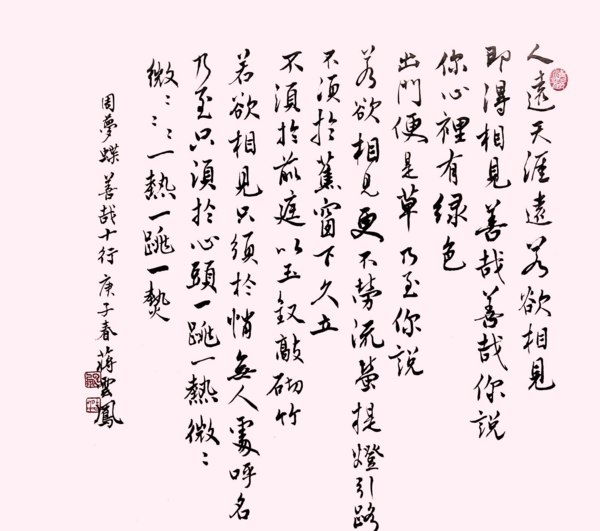 人遠天涯遠若欲相見
即得相見善哉善哉你說
你心裡有綠色
出門便是草乃至你說
若欲相見更不勞流螢提燈引路
不須於蕉窗下久立
不須於前庭以玉釵敲砌竹
若欲相見只須於悄無人處呼名
乃至只須於心頭一跳一熱微：
微：：：一熱一跳一熱
周夢蝶 善哉十行 庚子春 蔣雲鳳